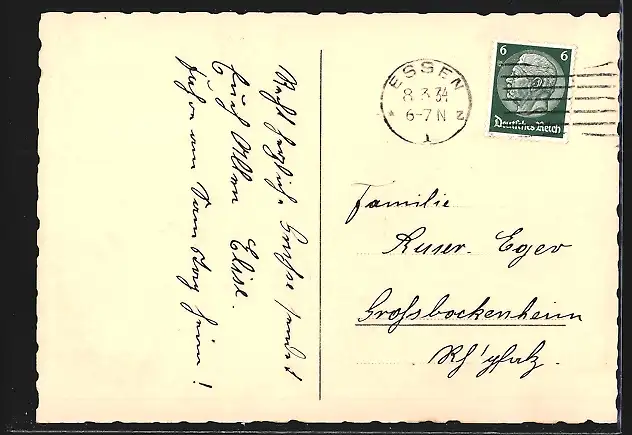 Recht herzliche Grüsse sendet
Euch Allen Elise.
Fahre am Samstag heim!
ESSEN
8.3.34
6-7 N
* 1 z
6 6
Deutsches Reich
Familie
Eger
Grossbockenheim
Rh'pfalz.